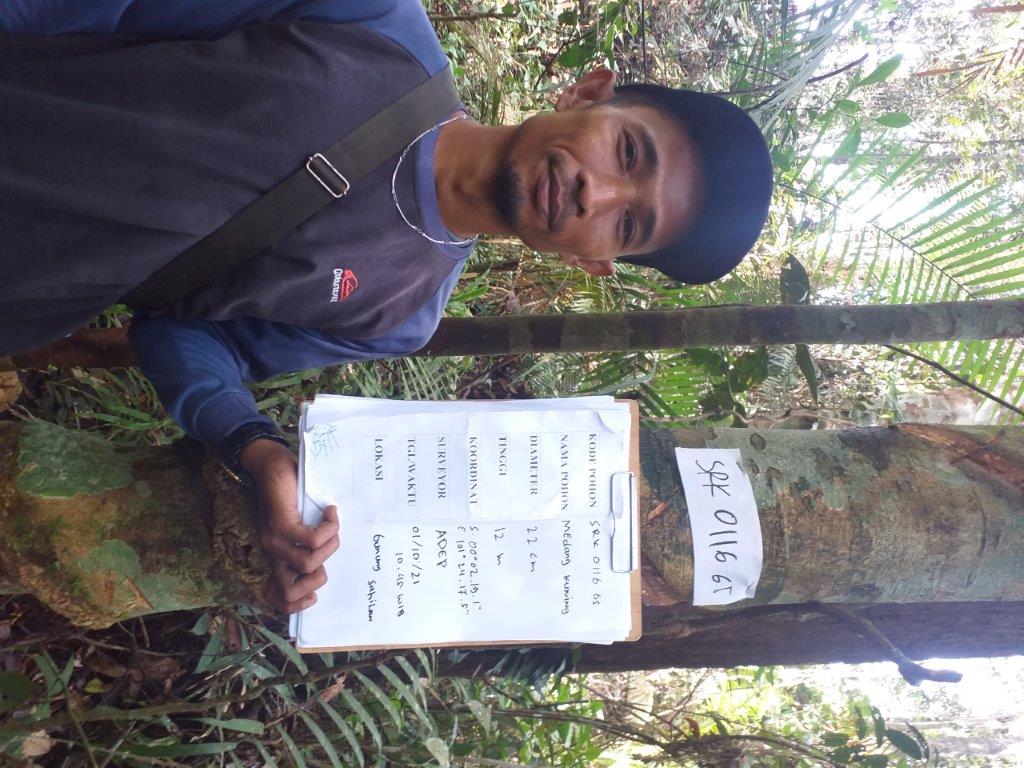 SRK 0116 GS
KODE POHON SRK 0116 GS
NAMA POHON MEdang Kuning
DIAMETER 22 cm
TINGGI 12 m
KOORDINAT S 00°02.19.1"
E 101°24.17.5"
SURVEYOR ADEP
TGL/WAKTU 01/10/21
10.45 WIB
LOKASI Gunung Sahilan